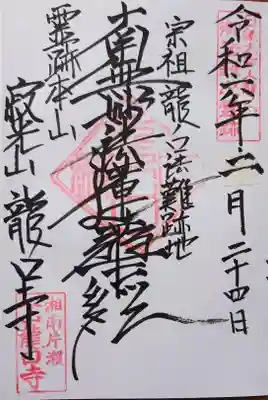 令和六年十二月二十四日
宗祖龍ノ口法難跡地
南無妙法蓮華経
霊跡本山
寂光山 龍口寺
湘南片瀬
龍口寺